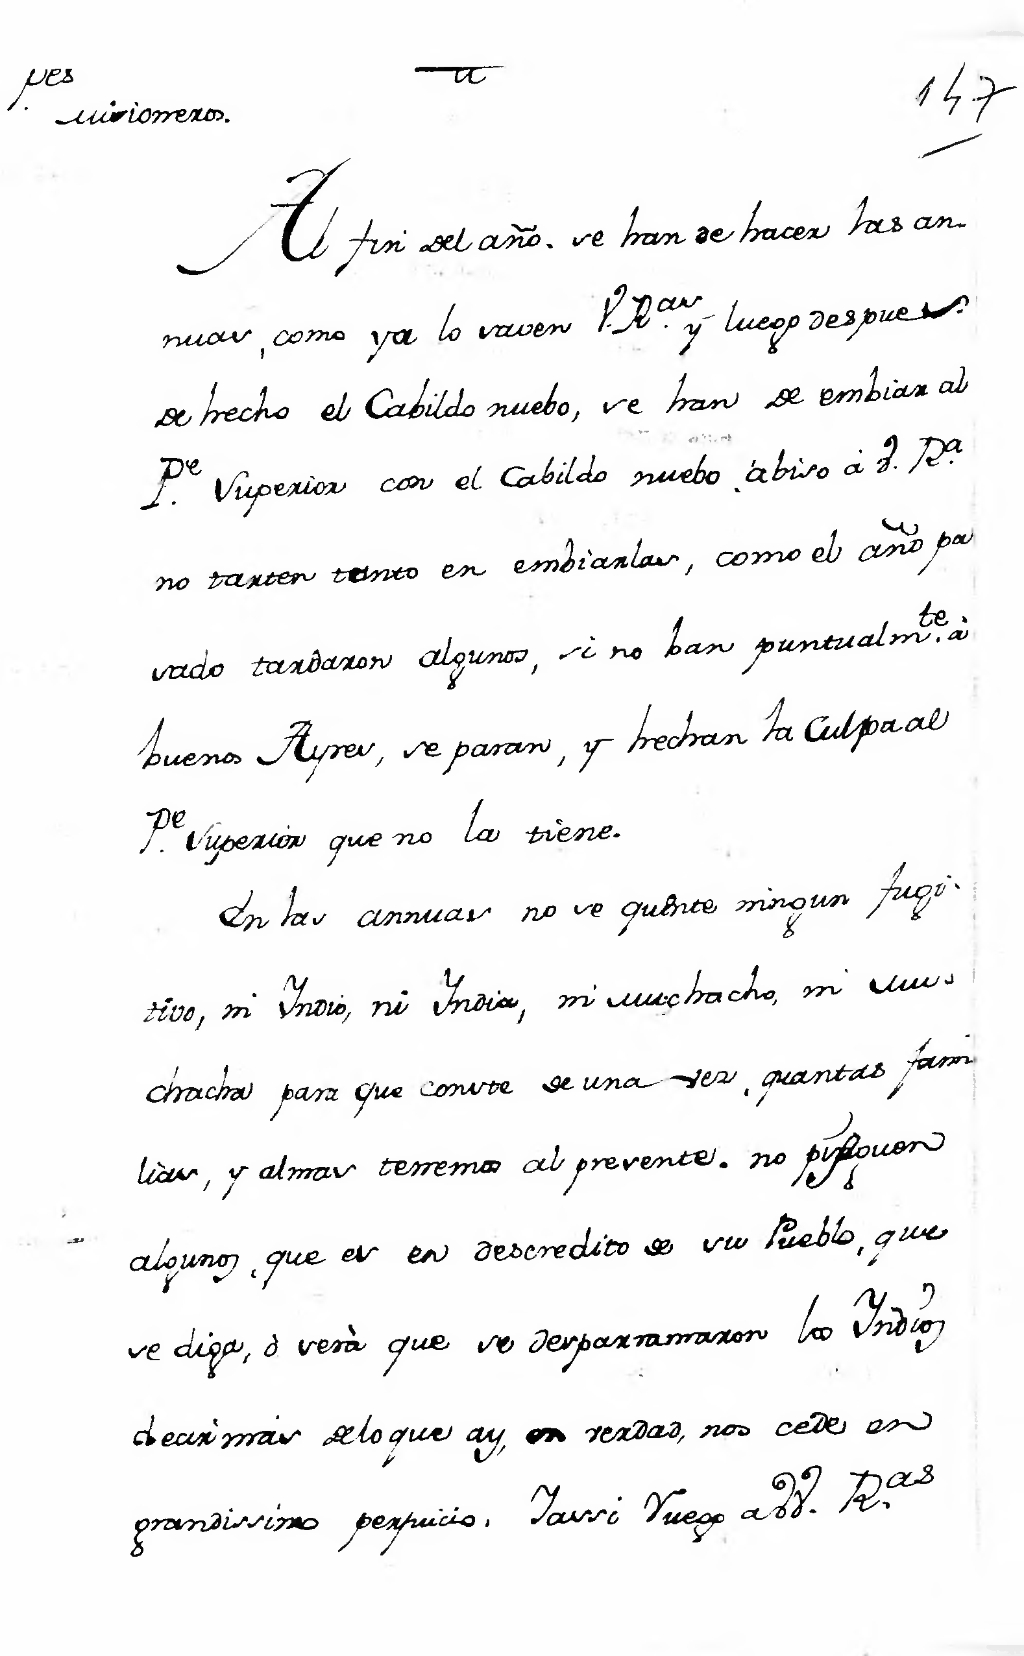 pes
misioneros.
a
147
Al fin del año. se han de hacer las an-
nuas, como ya lo saven V. Ras. y luego despues
de hecho el Cabildo nuebo, se han de embiar al
Pe. Superior con el Cabildo nuebo, abiso á V. Ra.
no tarten tanto en embiarlas, como el año pa
sado tardaron algunos, si no ban puntualmte. à
buenos Ayres, se paran, y hechan la Culpa al
Pe. Superior que no la tiene.
En las annuas no se quente ningun fugi-
tivo, ni Indio, ni India, ni muchacho, ni mu-
chacha para que conste de una vez, quantas fami
lias, y almas tenemos al presente. no
algunos, que es en descredito de su Pueblo, que
se diga, ò verà que se desparramaron los Indios
decir mas de lo que ay, en verdad, nos cede en
grandissimo perjuicio. Iassi Ruego a VV. Ras